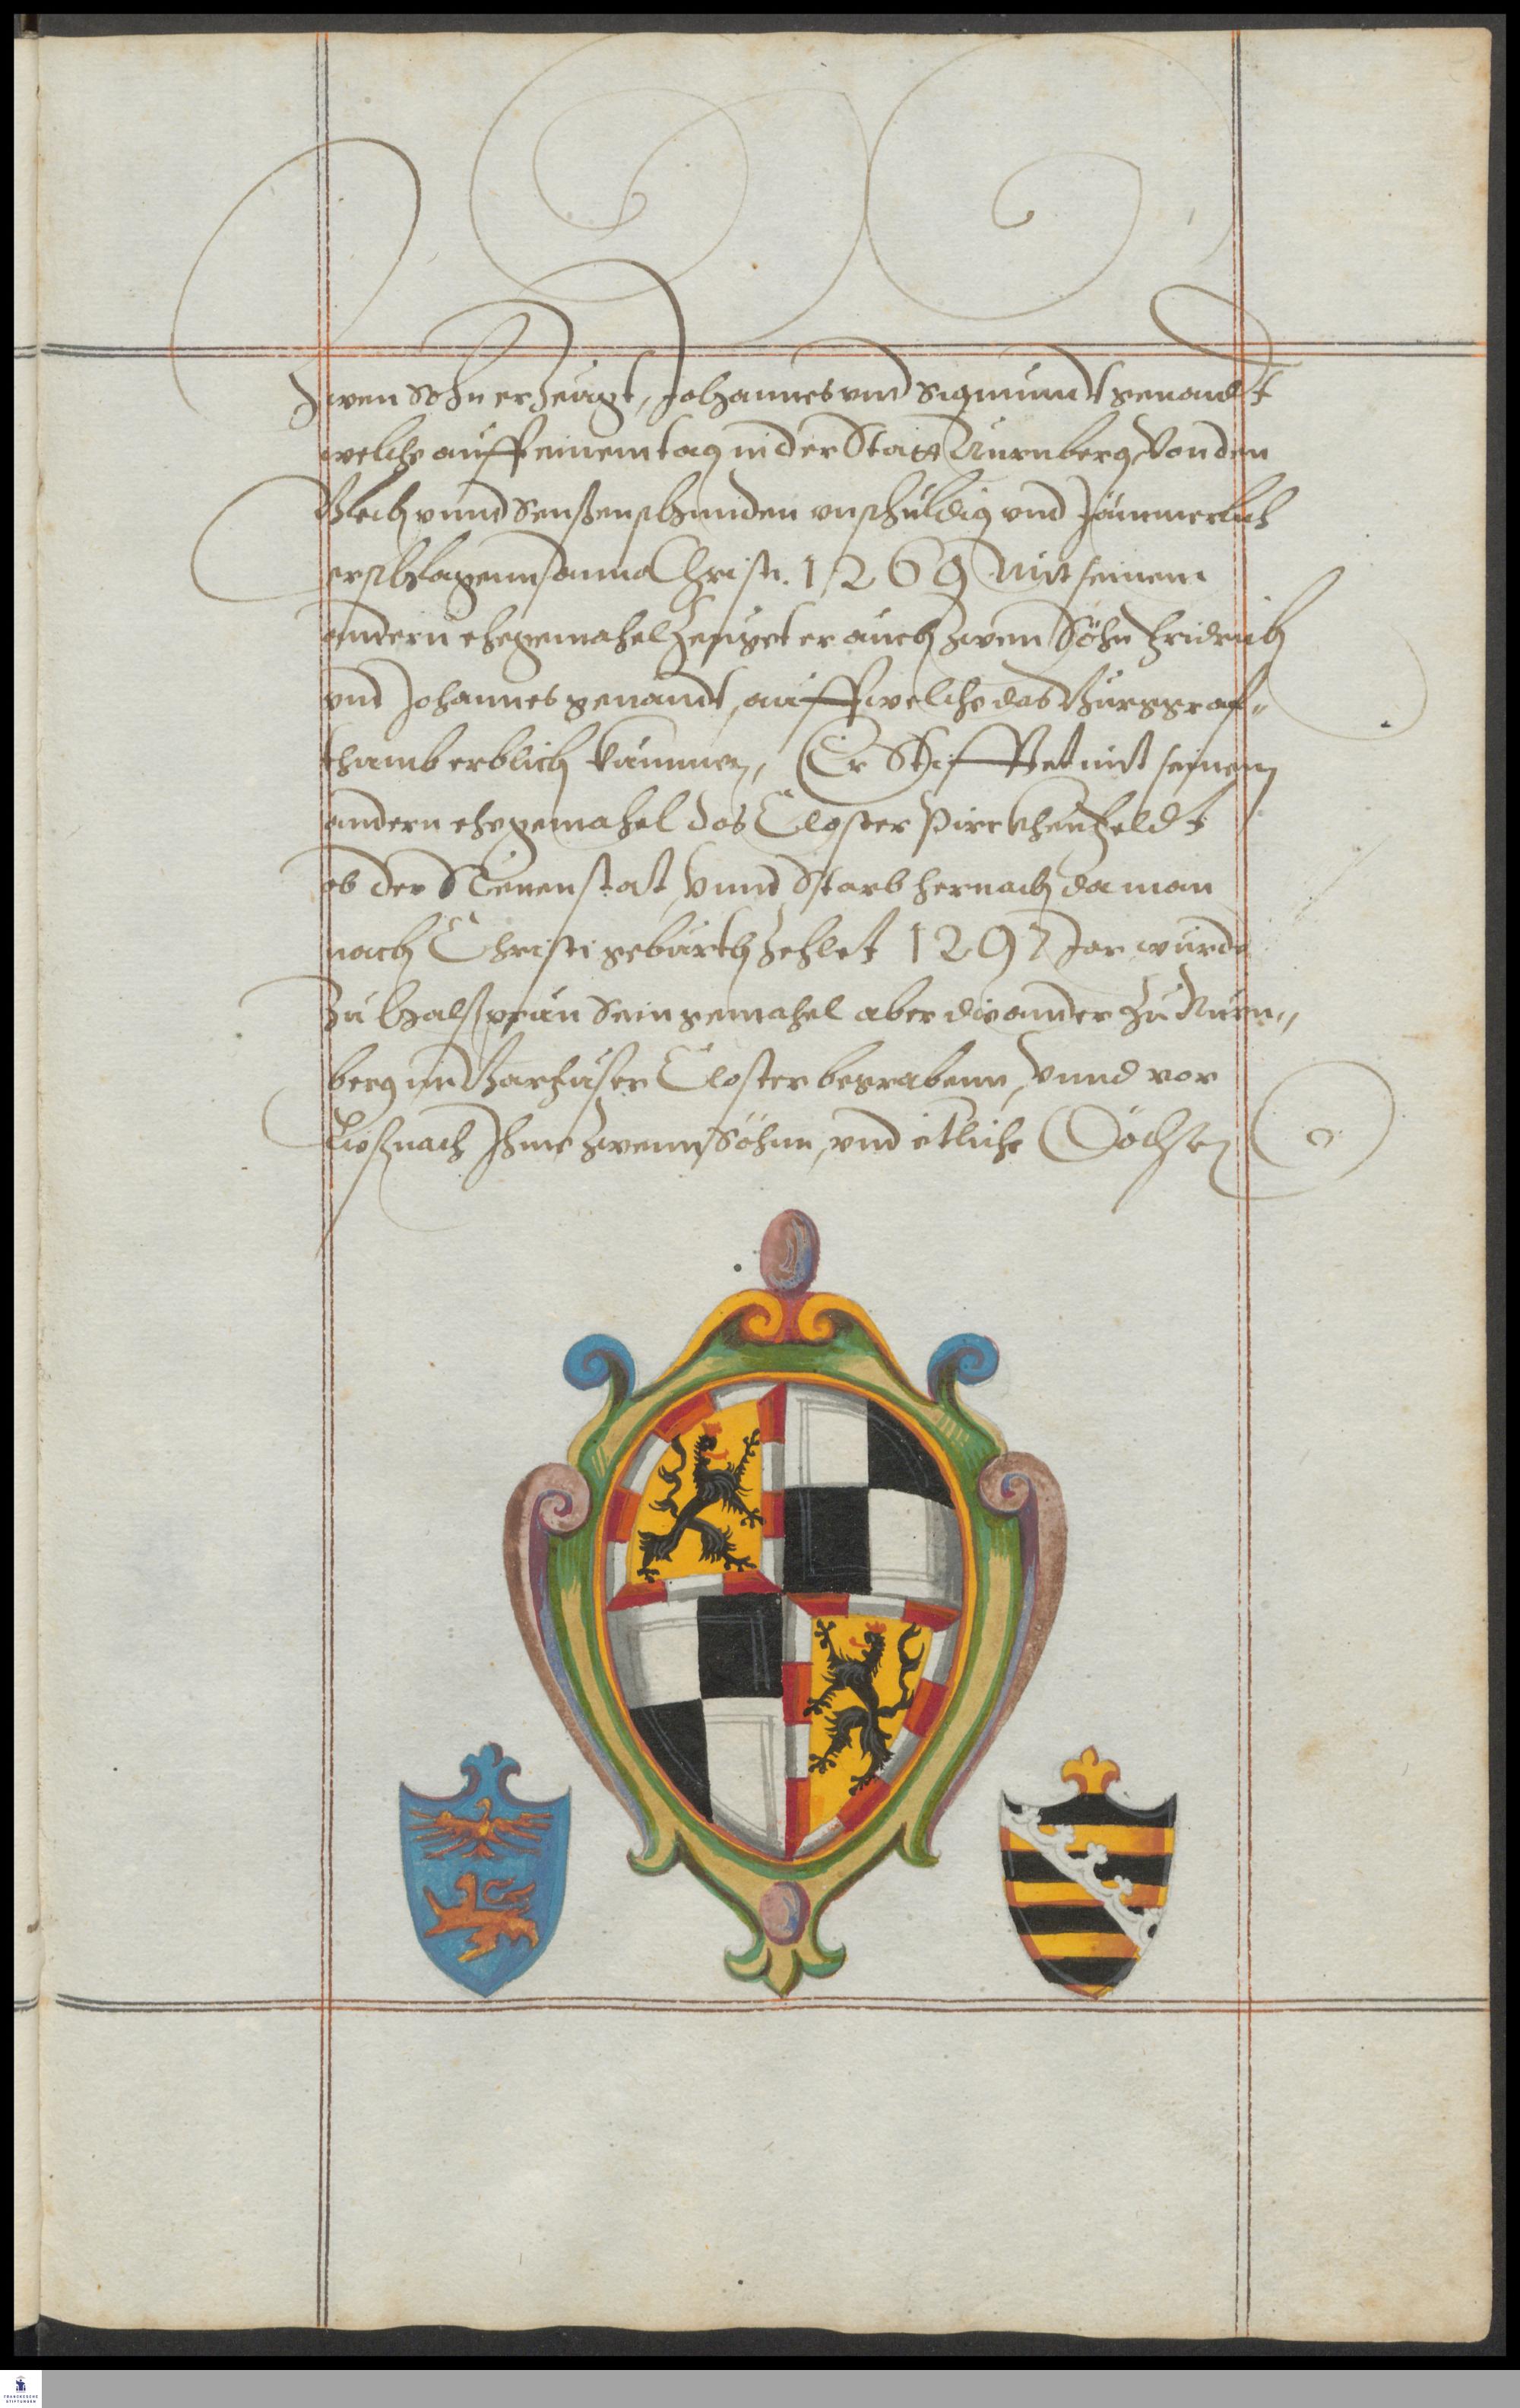 Zwen Sohn erzeugt, Johannes vnd Sigmundt genandt
welche auff einem tag in der Statt Nürnberg, Von den
Blech vnnd Sensenschmiden vnschuldig vnd Jämmerlich
erschlagenn, anno Christi. 1269 Mit seinem
andern ehegemahel Zeuget er auch zwen Söhn Fridrich
vnd Johannes genandt, auff welche das Burggraf„
thumb erblich kummen, Er Stifftet mit seinem
andern ehegemahel das Closter Pirckhenfeldt
ob der Neuenstat, Vnnd Starb hernach da man
nach Christi geburth Zehlet 1297 Jar wurde
Zu Halßprun Sein gemahel aber die ander zu Nürn„
berg im Barfuser Closter begrabenn, Vnnd ver
ließ nach Ihme zwenn Söhnn, vnd etliche Döchter
FRANCKESCHE
STIFTUNGEN